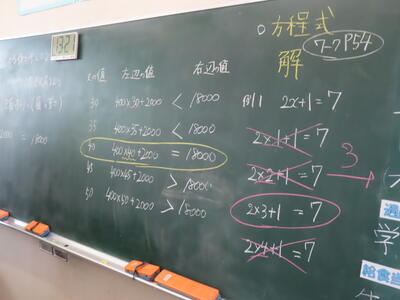 13:21
○方程式
解
ワークP54
xの値 左辺の値 右辺の値
30 400×30+2000 < 18000
35 400×35+2000 < 18000
40 400×40+2000 = 18000
45 400×45+2000 > 18000
50 400×50+2000 > 18000
2000 = 18000
例1 2x+1=7
2×1+1=7
2×2+1=7
3
2×3+1=7
2×4+1=7
学
給食当